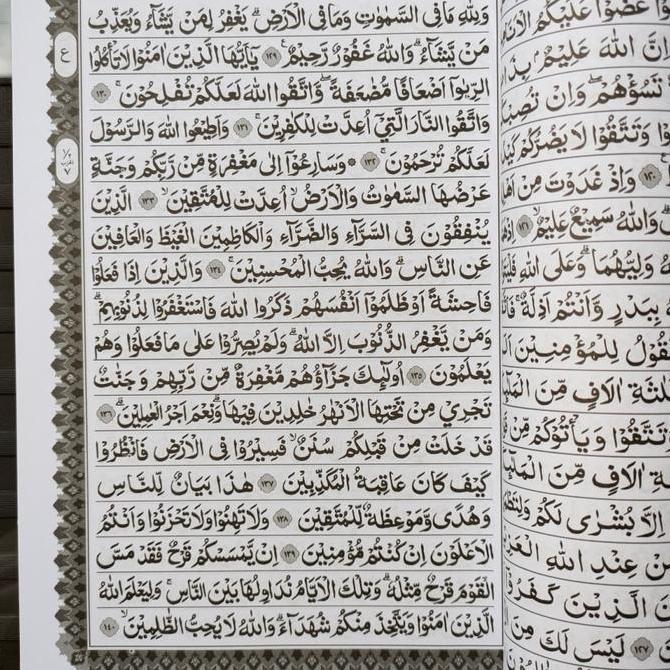 وَلِلّٰهِ مَا فِى السَّمٰوٰتِ وَمَا فِى الْاَرْضِ ۗ يَغْفِرُ لِمَنْ يَّشَاۤءُ وَيُعَذِّبُ
مَنْ يَّشَاۤءُ ۗ وَاللّٰهُ غَفُوْرٌ رَّحِيْمٌ ࣖ ١٢٩ يٰٓاَيُّهَا الَّذِيْنَ اٰمَنُوْا لَا تَأْكُلُوا
الرِّبٰوٓا اَضْعَافًا مُّضٰعَفَةً ۖ وَّاتَّقُوا اللّٰهَ لَعَلَّكُمْ تُفْلِحُوْنَ ۚ ١٣٠
وَاتَّقُوا النَّارَ الَّتِيْٓ اُعِدَّتْ لِلْكٰفِرِيْنَ ۚ ١٣١ وَاَطِيْعُوا اللّٰهَ وَالرَّسُوْلَ
لَعَلَّكُمْ تُرْحَمُوْنَ ۚ ١٣٢ ۞ وَسَارِعُوْٓا اِلٰى مَغْفِرَةٍ مِّنْ رَّبِّكُمْ وَجَنَّةٍ
عَرْضُهَا السَّمٰوٰتُ وَالْاَرْضُ ۙ اُعِدَّتْ لِلْمُتَّقِيْنَ ۙ ١٣٣ الَّذِيْنَ
يُنْفِقُوْنَ فِى السَّرَّاۤءِ وَالضَّرَّاۤءِ وَالْكَاظِمِيْنَ الْغَيْظَ وَالْعَافِيْنَ
عَنِ النَّاسِ ۗ وَاللّٰهُ يُحِبُّ الْمُحْسِنِيْنَ ۚ ١٣٤ وَالَّذِيْنَ اِذَا فَعَلُوْا
فَاحِشَةً اَوْ ظَلَمُوْٓا اَنْفُسَهُمْ ذَكَرُوا اللّٰهَ فَاسْتَغْفَرُوْا لِذُنُوْبِهِمْ ۗ
وَمَنْ يَّغْفِرُ الذُّنُوْبَ اِلَّا اللّٰهُ ۗ وَلَمْ يُصِرُّوْا عَلٰى مَا فَعَلُوْا وَهُمْ
يَعْلَمُوْنَ ١٣٥ اُولٰۤىِٕكَ جَزَاۤؤُهُمْ مَّغْفِرَةٌ مِّنْ رَّبِّهِمْ وَجَنّٰتٌ
تَجْرِيْ مِنْ تَحْتِهَا الْاَنْهٰرُ خٰلِدِيْنَ فِيْهَا ۗ وَنِعْمَ اَجْرُ الْعٰمِلِيْنَ ۗ ١٣٦
قَدْ خَلَتْ مِنْ قَبْلِكُمْ سُنَنٌ ۙ فَسِيْرُوْا فِى الْاَرْضِ فَانْظُرُوْا
كَيْفَ كَانَ عَاقِبَةُ الْمُكَذِّبِيْنَ ١٣٧ هٰذَا بَيَانٌ لِّلنَّاسِ
وَهُدًى وَّمَوْعِظَةٌ لِّلْمُتَّقِيْنَ ١٣٨ وَلَا تَهِنُوْا وَلَا تَحْزَنُوْا وَاَنْتُمُ
الْاَعْلَوْنَ اِنْ كُنْتُمْ مُّؤْمِنِيْنَ ١٣٩ اِنْ يَّمْسَسْكُمْ قَرْحٌ فَقَدْ مَسَّ
الْقَوْمَ قَرْحٌ مِّثْلُهٗ ۗ وَتِلْكَ الْاَيَّامُ نُدَاوِلُهَا بَيْنَ النَّاسِ ۚ وَلِيَعْلَمَ اللّٰهُ
الَّذِيْنَ اٰمَنُوْا وَيَتَّخِذَ مِنْكُمْ شُهَدَاۤءَ ۗ وَاللّٰهُ لَا يُحِبُّ الظّٰلِمِيْنَ ۙ ١٤٠
ع
عَضُّوْا عَلَيْكُمُ
اللّٰهَ عَلِيْمٌ
تَسُؤْهُمْ ۖ وَاِنْ
وَتَتَّقُوْا لَا يَضُرُّكُمْ
١٢٠ وَاِذْ غَدَوْتَ مِنْ
وَاللّٰهُ سَمِيْعٌ عَلِيْمٌ ۙ ١٢١
وَلِيُّهُمَا ۗ وَعَلَى اللّٰهِ
بِبَدْرٍ وَّاَنْتُمْ اَذِلَّةٌ ۚ
لِلْمُؤْمِنِيْنَ
اٰلَافٍ مِّنَ
وَتَتَّقُوْا وَيَأْتُوْكُمْ
اٰلَافٍ مِّنَ
اِلَّا بُشْرٰى لَكُمْ
عِنْدِ اللّٰهِ
الَّذِيْنَ كَفَرُوْٓا
١٢٧ لَيْسَ لَكَ مِنَ